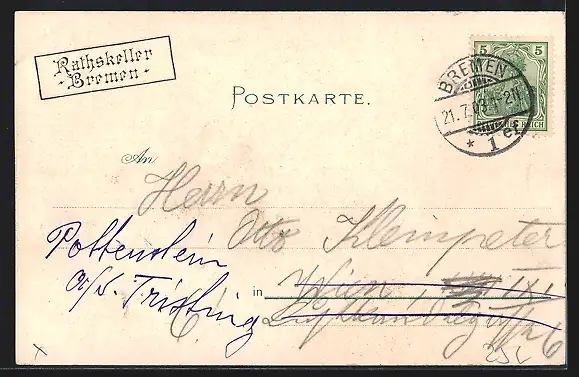 Rathskeller
- Bremen -
5 5
BREMEN
21.7.03. 1-2N.
* 1 cf.
REICH
POSTKARTE.
An
Herrn
Otto Kleinpeter
Pottenstein
a/d. Triesting
in Wien, IX,
6